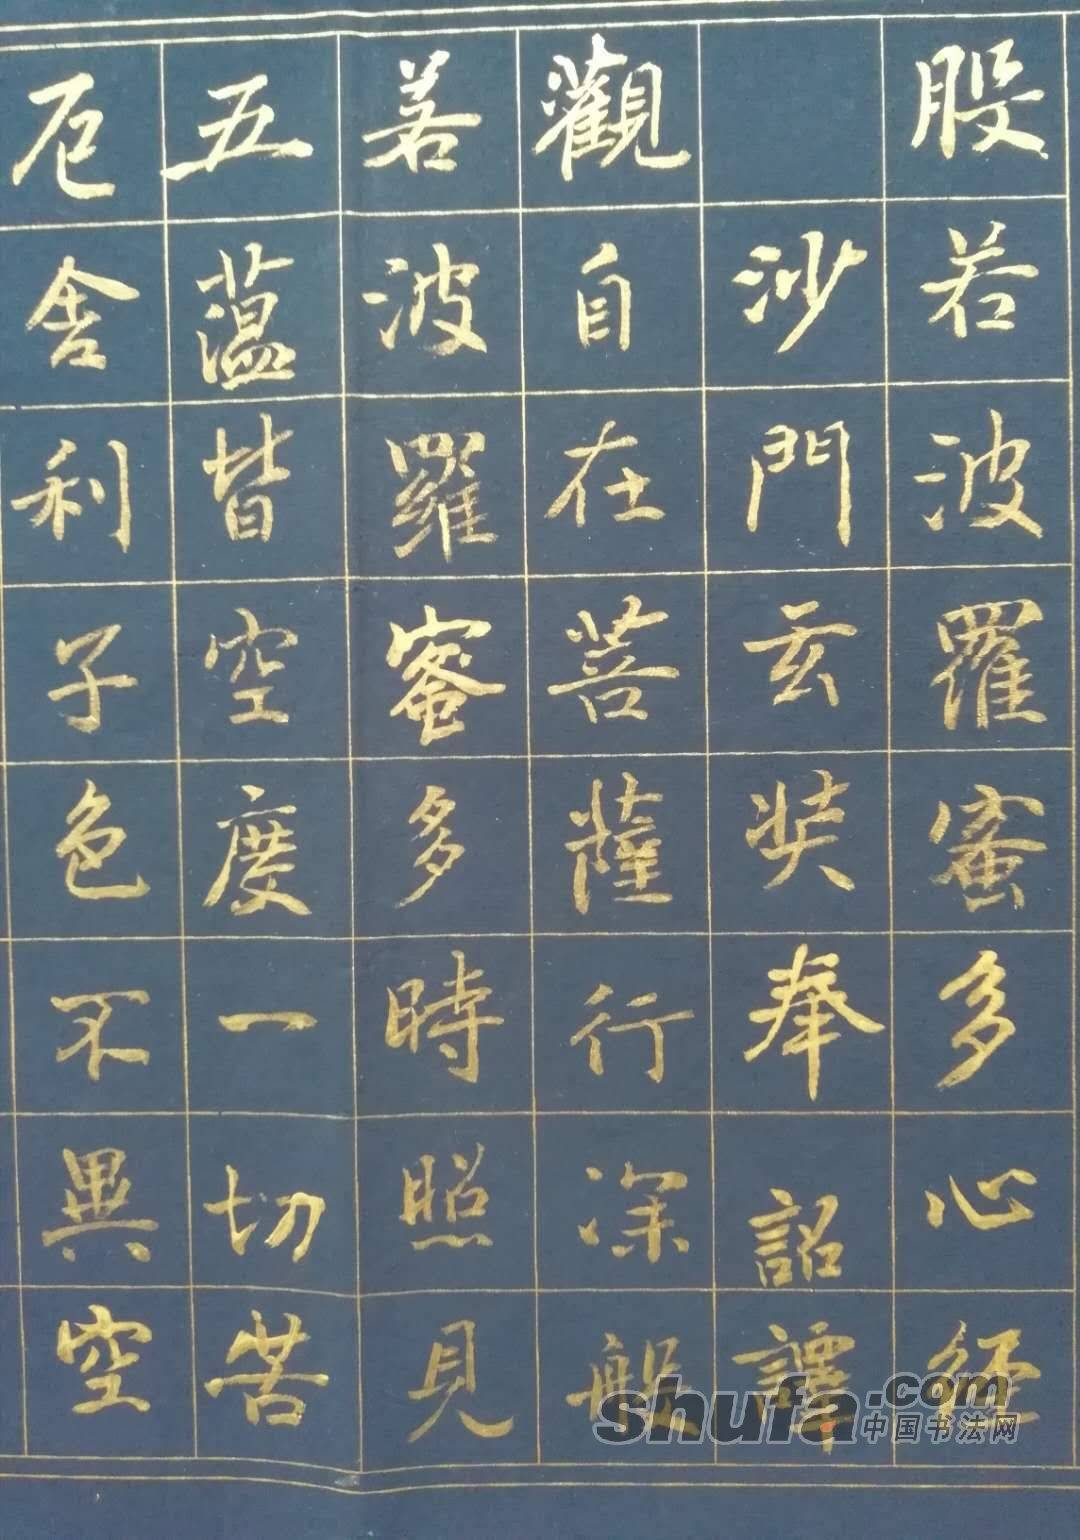 般若波羅蜜多心經
沙門玄奘奉詔譯
觀自在菩薩行深般
若波羅蜜多時照見
五蘊皆空度一切苦
厄舍利子色不異空
shufa.com
中国书法网